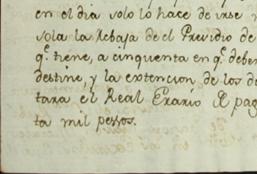 en el dia solo lo hace de irse
sola la Rebaja de el Presidio de
q.e tiene, a cinquenta en q.e deber
destine, y la extencion de los d
tara el Real Erario pag
ta mil pessos.